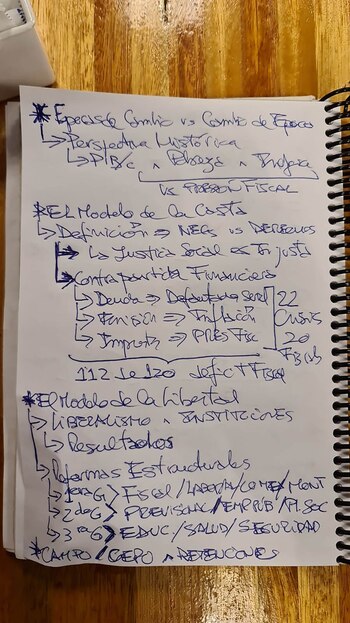 * Epocas de Cambio vs Cambio de Epocas
↳ Perspectiva Histórica
↳ PIB/c ^ Pobreza ^ Indigencia
vs PRESIÓN FISCAL
* EL Modelo de la Casta
↳ Definición ⇒ NECs vs DERECHOS
↳ La Justicia Social es Injusta
↳ Contrapartida Financiera
↳ Deuda ⇒ Defaulteador serial
↳ Emisión ⇒ Inflación
↳ Impuestos ⇒ PRES Fisc
22 Crisis
20 Fiscales
112 de 120 deficit Fiscal
* El Modelo de la Libertad
↳ LIBERALISMO ^ INSTITUCIONES
↳ Resultados
↳ Reformas Estructurales
↳ 1eraG > Fiscal/LABORAL/COMEX/MONT
↳ 2daG > PREVISIONAL/EMP PÚB/PL SOC
↳ 3raG > EDUC/SALUD/SEGURIDAD
* CAMPO / CIEPO ^ RETENCIONES